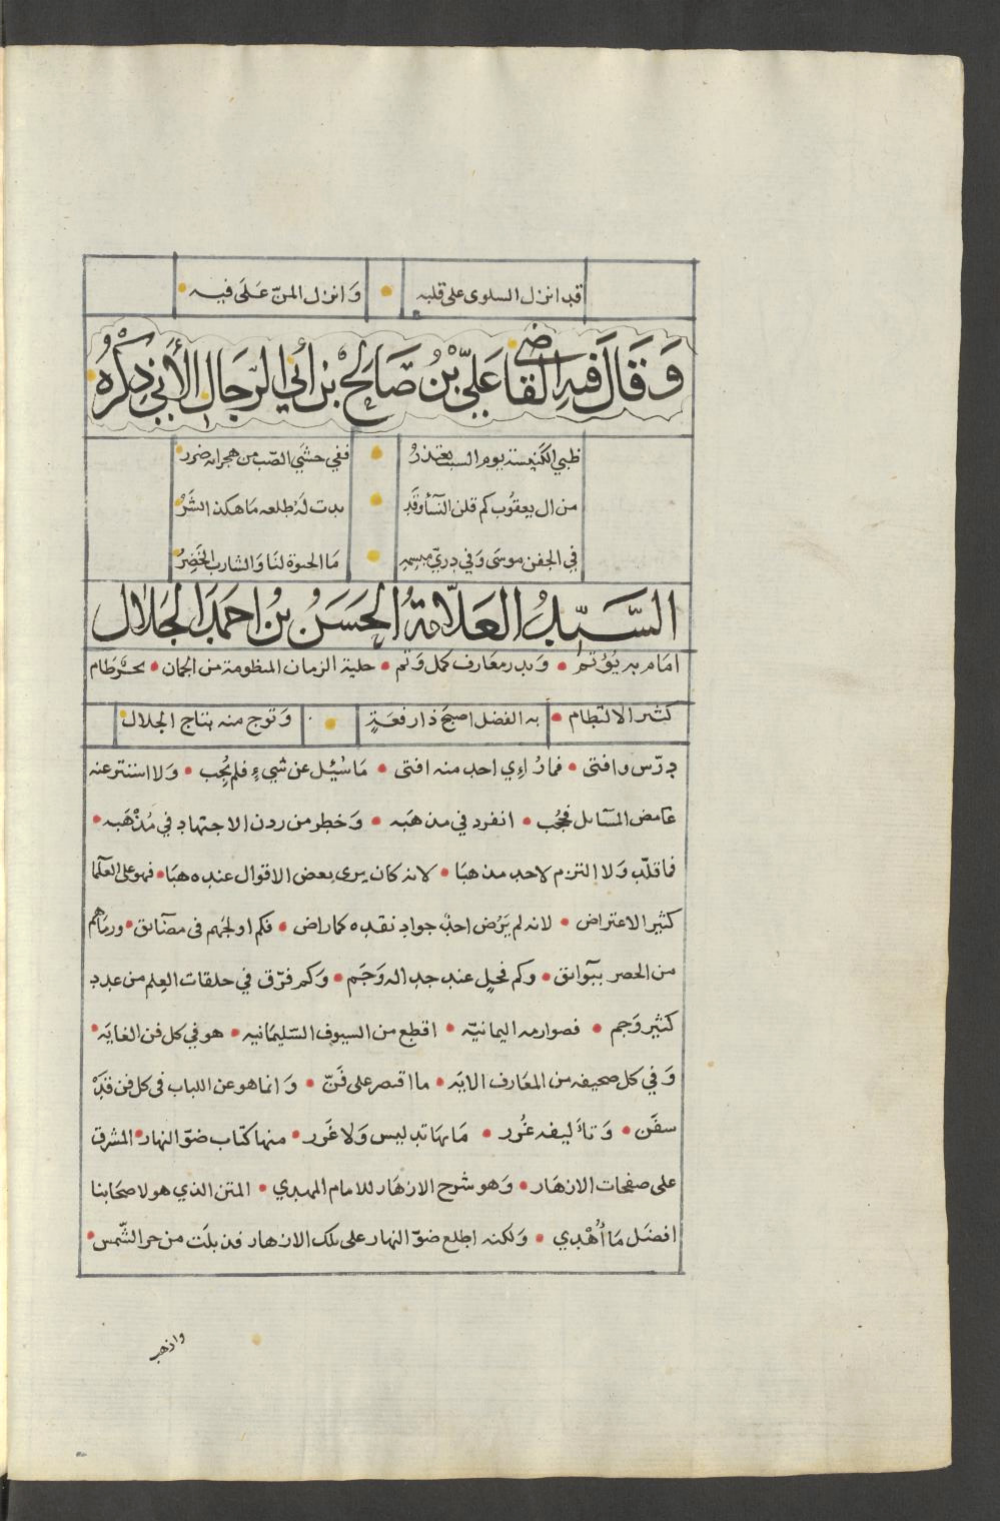 قد انزل السلوى على قلبه • وَانزل المنّ عَلَى فيه
وَقَالَ فيهِ القَاضي عَلِيّ بْنُ صَالِحْ بن أبي الرّجَال الأتي ذِكْرُهُ
ظبي الكَنِيسَة يوم السبت يعتذرُ • ففي حشَى الصّب من هجرانه ضرر
من ال يعقُوب كم قلن النسَأ وقد • بدت لَهُ طلعه مَا هكذ البشَرُ
في الجفن موسَى وَفي درّي مبسمهِ • مَا الحيوة لنَا وَالشارب الخَضِرُ
السَّيّدُ العَلّامَةُ الحَسَنُ بْنُ احمَدَ الجَلَال
امَام به يُؤتم • وَبدر معَارف كمل وَتم • حلية الزمان المنظومة من الجمان • بحْرٌ طَام
كثير الالتطام • به الفضل اصبحَ ذا رفعَةٍ • وَتوج منه بتاج الجلال
درّس وافتى • فمارُاءِي احد منه افتى • مَا سُئِل عن شيءٍ فلم يُجِب • وَلا استتر عنه
غامض المسَائل فحُجُب • انفرد في مذهَبه • وَخطر من ردن الاجتهاد في مُذْهَبه •
فما قلّد وَلا التزم لاحد مذهبَا • لانه كان يرى بعض الاقوال عنده هبَا • فهو على العلَمَا
كثير الاعتراض • لانه لم يَرُض احدٌ جواد نقده كما راض • فكم اولجهم فى مضَائق • ورمَاهم
من الحصر ببَوائق • وكم فحِيل عند جداله وَجَم • وَكم فرّق في حلقات العِلم من عدد
كثير وَجم • فصوارمه اليمانيّه • اقطع من السيوف السّليمَانيه • هو في كل فن الغايَه •
وَفي كل صحيفه من المعَارف الايَه • ما اقتصر على فَنّ • وَانما هو عن اللباب فى كل فن قدْ
سفَن • وَتأليفه غُرر • مَا بهَا تدليس وَلا غَرر • منها كتاب ضوّ النهار • المشرق
على صفحات الازهَار • وَهو شرح الازهَار للامام المهدي • المتن الذي هو لاصحَابنا
افضَل مَا أُهْدِي • وَلكنه اطلع ضوّ النهار على تلك الازهار فذبلَت من حر الشّمس •
واذهب